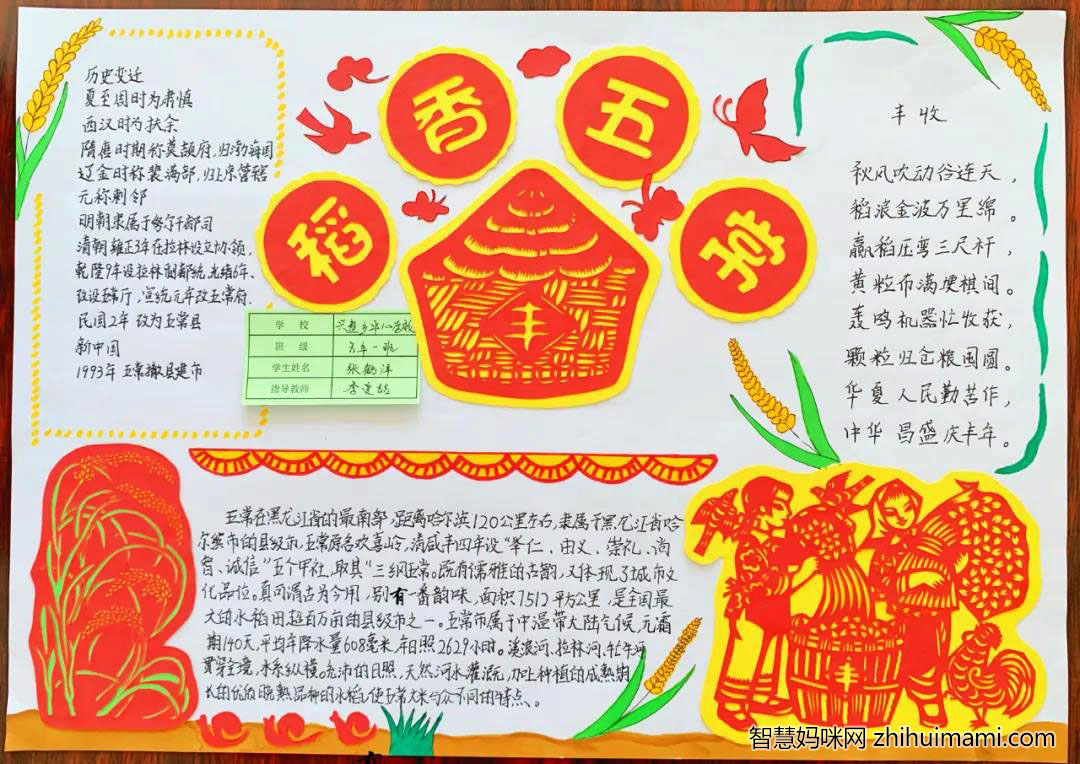 稻
香
五
常
丰
历史变迁
夏至周时为肃慎
西汉时为扶余
隋唐时期称莫颉府,归渤海国
辽金时称裴满部,归上京管辖
元称刺邻
明朝隶属于努尔干都司
清朝雍正3年在拉林设立协领,
乾隆9年设拉林副都统,光绪6年、
改设五常厅,宣统元年改五常府.
民国2年 改为五常县
新中国
1993年 五常撤县建市
学 校
班 级 五年一班
学生姓名 张鹤洋
指导教师
丰收
秋风吹动谷连天,
稻浪金波万里绵。
赢稻压弯三尺杆,
黄粒布满梗棋间。
轰鸣机器忙收获,
颗粒归仓粮囤圆。
华夏人民勤苦作,
中华昌盛庆丰年。
五常在黑龙江省的最南部,距离哈尔滨120公里左右,隶属于黑龙江省哈
尔滨市的县级市,五常原名欢喜岭,清咸丰四年设"举仁、由义、崇礼、尚
智、诚信"五个甲社,取其"三纲五常。既有儒雅的古韵,又体现了城市文
化品位。真可谓古为今用,别有一番韵味,面积7512平方公里,是全国最
大的水稻田超百万亩的县级市之一。五常市属于中温带大陆气候,无霜
期140天,平均年降水量608毫米,年日照2629小时。溪浪河、拉林河、牤牛河
贯穿全境,水系纵横。充沛的日照,天然河水灌溉,加上种植的成熟期
长的优质晚熟品种的水稻,使五常大米与众不同的特点、。
丰
智慧妈咪网 zhihuimami.com